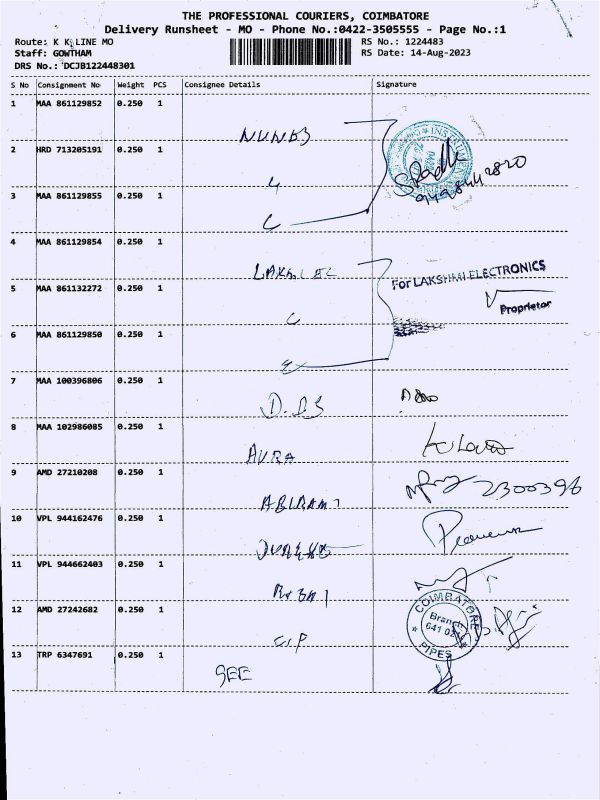 THE PROFESSIONAL COURIERS, COIMBATORE
Delivery Runsheet - MO - Phone No.:0422-3505555 - Page No.:1
Route: K K LINE MO
RS No.: 1224483
Staff: GOWTHAM
RS Date: 14-Aug-2023
DRS No.: DCJB122448301
S No Consignment No Weight PCS Consignee Details Signature
1 MAA 861129852 0.250 1
2 HRD 713205191 0.250 1
3 MAA 861129855 0.250 1
4 MAA 861129854 0.250 1
For LAKSHMI ELECTRONICS
5 MAA 861132272 0.250 1
Proprietor
6 MAA 861129850 0.250 1
7 MAA 100396806 0.250 1
8 MAA 102986085 0.250 1
AURA
9 AMD 27210208 0.250 1
2300396
ABIRAMI
10 VPL 944162476 0.250 1
11 VPL 944662403 0.250 1
12 AMD 27242682 0.250 1
COIMBATORE
Branch
PIPES
13 TRP 6347691 0.250 1
GEE